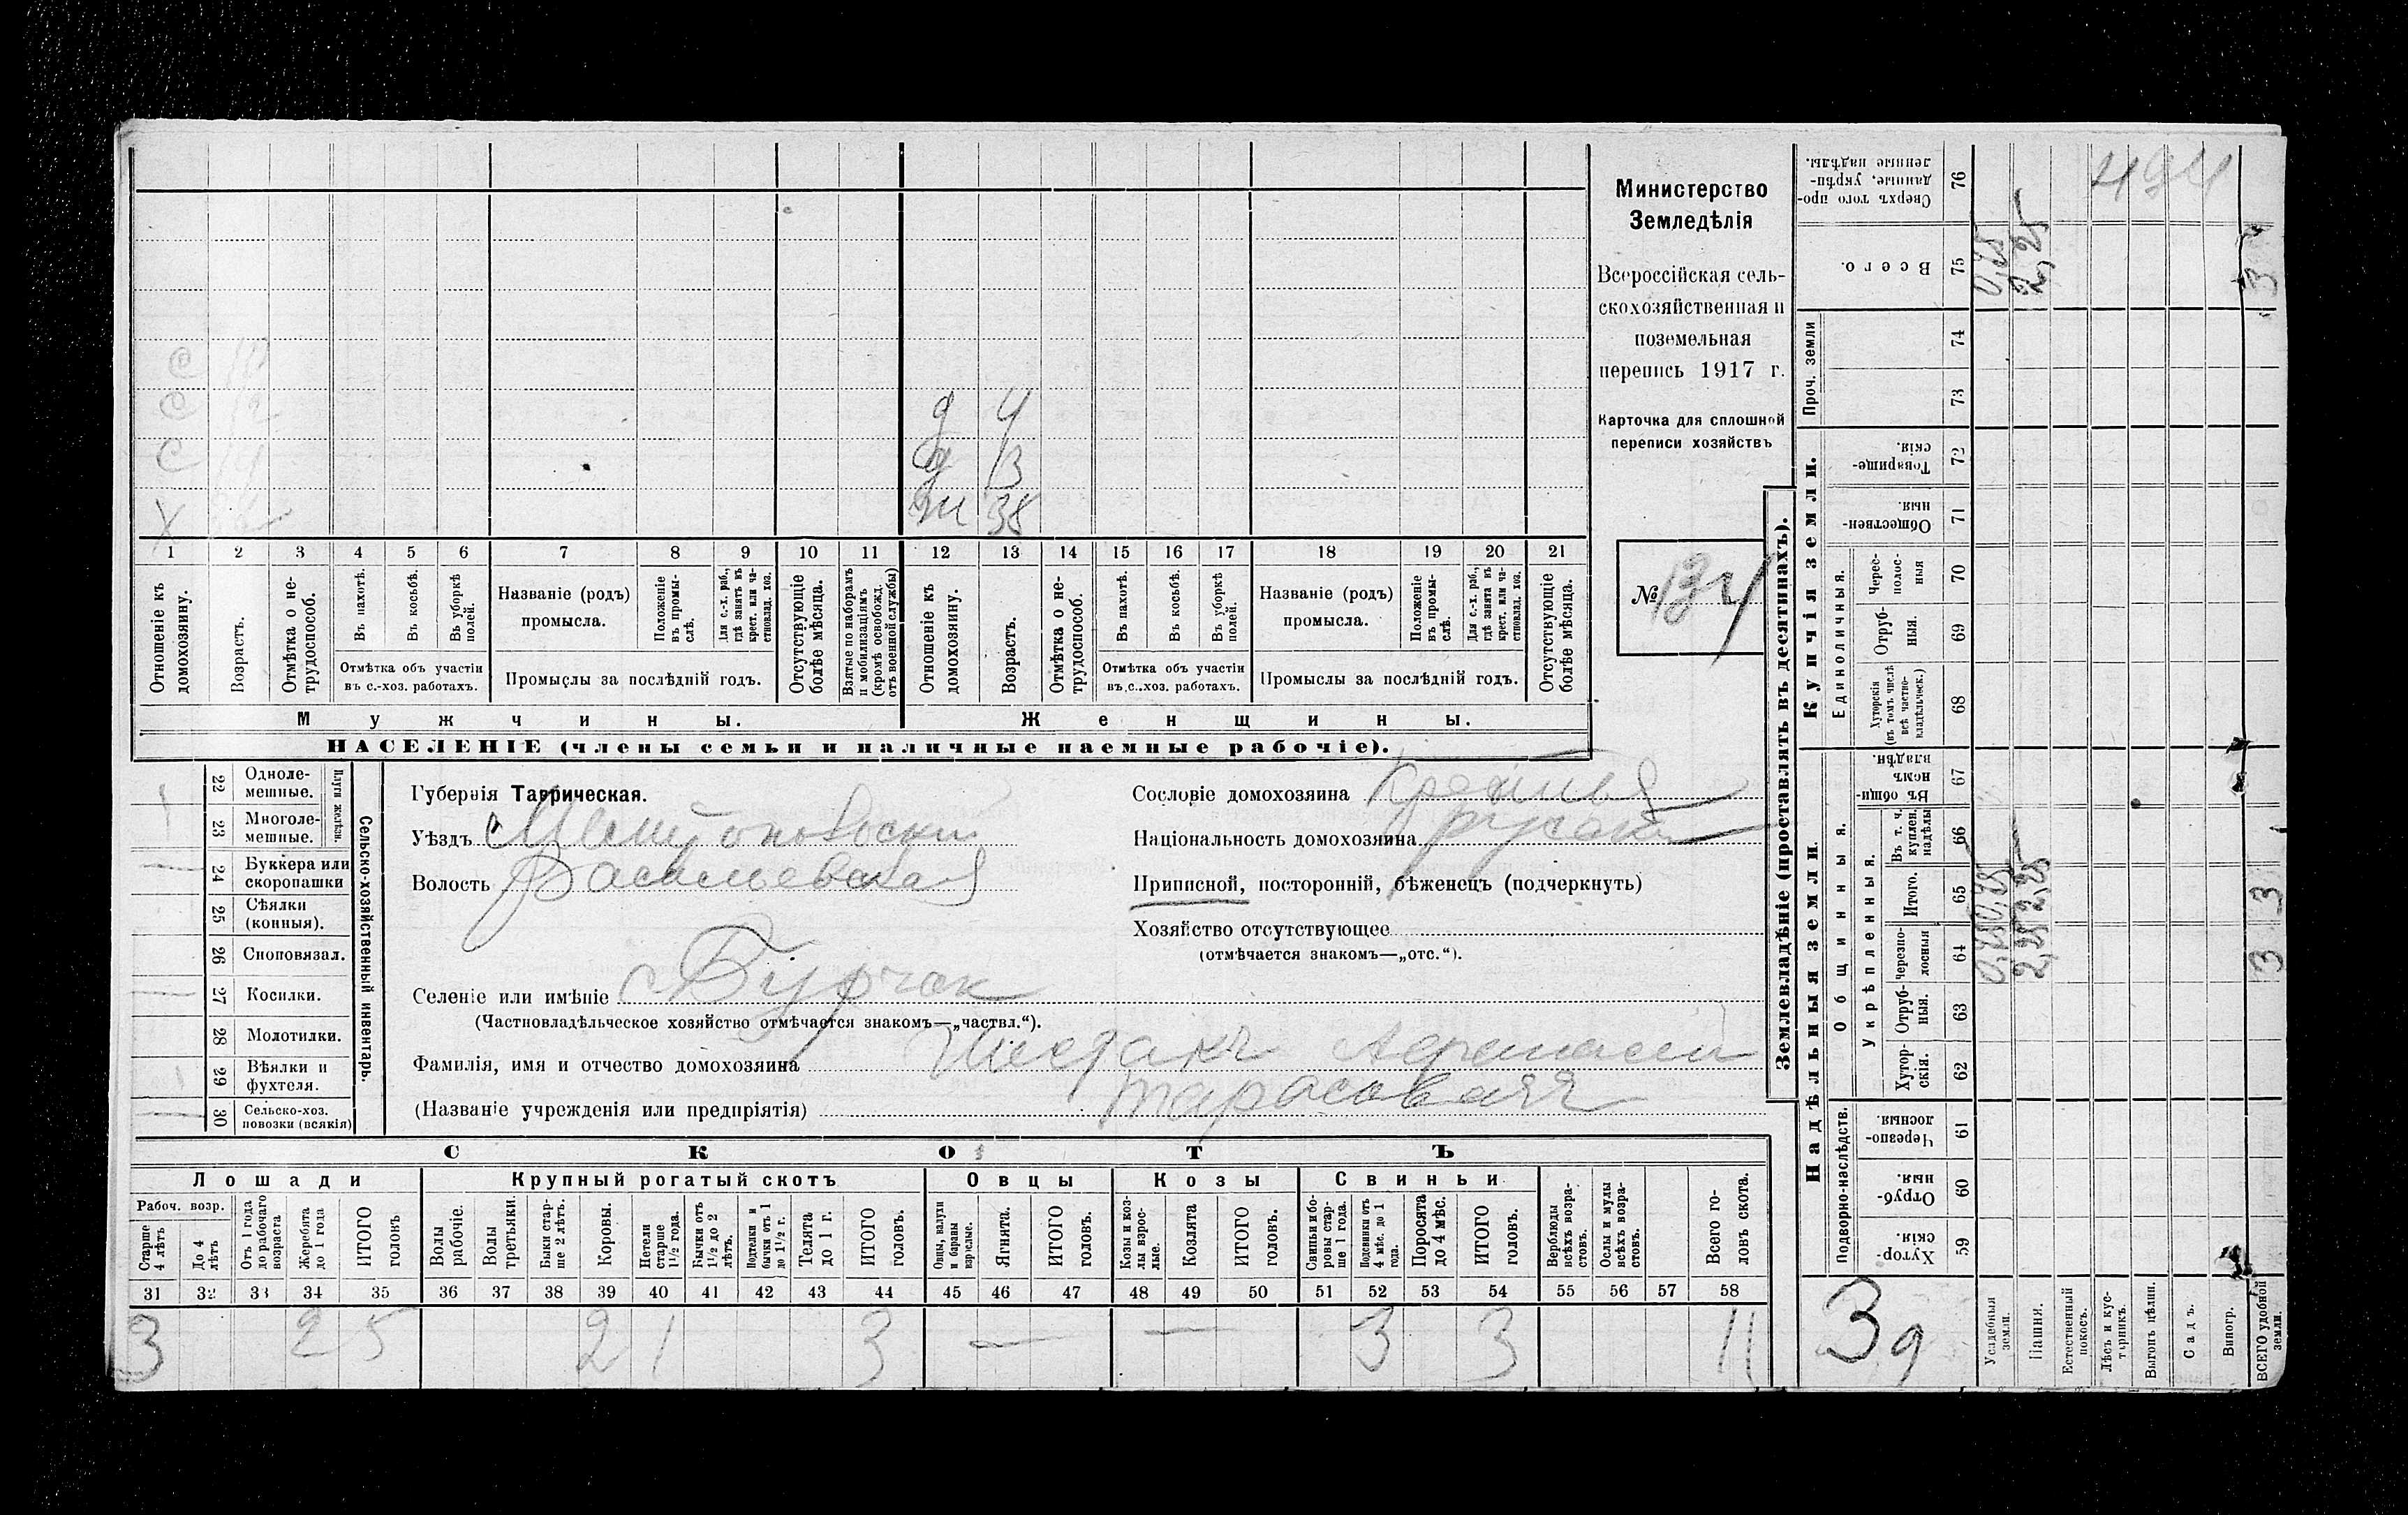 Министерство
Земледѣлія
Всероссійская сель-
скохозяйственная и
поземельная
перепись 1917 г.
Карточка для сплошной
переписи хозяйствъ
№ 134
с 10
с 12
с
х
д 4
д 13
ж 38
1 2 3 4 5 6 7 8 9 10 11 12 13 14 15 16 17 18 19 20 21
Отношеніе къ домохозяину.
Возрастъ.
Отмѣтка о не-трудоспособ.
Въ пахотѣ.
Въ косьбѣ.
Въ уборкѣ полей.
Отмѣтка объ участіи
въ с.-хоз. работахъ.
Названіе (родъ)
промысла.
Положеніе въ промы-слѣ.
Для с.-х. раб., гдѣ занятъ въ крест. или ча-стновлад. хоз.
Промыслы за послѣдній годъ.
Отсутствующіе болѣе мѣсяца.
Взятые по наборамъ и мобилизаціямъ (кромѣ освобожд. отъ военной службы)
Отношеніе къ домохозяину.
Возрастъ.
Отмѣтка о не-трудоспособ.
Въ пахотѣ.
Въ косьбѣ.
Въ уборкѣ полей.
Отмѣтка объ участіи
въ с.-хоз. работахъ.
Названіе (родъ)
промысла.
Положеніе въ промы-слѣ.
Для с.-х. раб., гдѣ занята въ крест. или ча-стновлад. хоз.
Промыслы за послѣдній годъ.
Отсутствующіе болѣе мѣсяца.
Мужчины. Женщины.
НАСЕЛЕНІЕ (члены семьи и наличные наемные рабочіе).
Сельско-хозяйственный инвентарь.
Плуги желѣзн.
22 Одноле-мешные.
23 Многоле-мешные.
24 Буккера или скоропашки
25 Сѣялки (конныя).
26 Сноповязал.
27 Косилки.
28 Молотилки.
29 Вѣялки и фухтеля.
30 Сельско-хоз. повозки (всякія)
Губернія Таврическая.
Уѣздъ Мелитопольскій
Волость Васильевская
Селеніе или имѣніе с Бурчак
(Частновладѣльческое хозяйство отмѣчается знакомъ—„частвл.“).
Фамилія, имя и отчество домохозяина Шестакъ Афанасій
(Названіе учрежденія или предпріятія) Тарасовая
Сословіе домохозяина
Національность домохозяина русская
Приписной, посторонній, бѣженецъ (подчеркнуть)
Хозяйство отсутствующее
(отмѣчается знакомъ—„отс.“).
СКОТЪ
Лошади Крупный рогатый скотъ Овцы Козы Свиньи
Рабоч. возр.
Старше 4 лѣтъ
До 4 лѣтъ
Отъ 1 года до рабочаго возраста
Жеребята до 1 года
ИТОГО головъ
Волы рабочіе.
Волы третьяки.
Быки стар-ше 2 лѣтъ.
Коровы.
Нетели старше 1½ года.
Бычки отъ 1½ до 2 лѣтъ.
Подтелки и бычки отъ 1 до 1½ г.
Телята до 1 г.
ИТОГО головъ.
Овцы, валухи и бараны взрослые.
Ягнята.
ИТОГО головъ.
Козы и коз-лы взрос-лые.
Козлята
ИТОГО головъ.
Свиньи и бо-ровы стар-ше 1 года.
Подсвинки отъ 4 мѣс. до 1 года.
Поросята до 4 мѣс.
ИТОГО головъ.
Верблюды всѣхъ возра-стовъ.
Ослы и мулы всѣхъ возра-стовъ.
Всего го-ловъ скота.
31 32 33 34 35 36 37 38 39 40 41 42 43 44 45 46 47 48 49 50 51 52 53 54 55 56 57 58
3 2 5 2 1 3 — — 3 3 11
Землевладѣніе (проставлять въ десятинахъ).
Надѣльныя земли.
Купчія земли.
Проч. земли
Подворно-наслѣдств.
Общинныя.
Укрѣпленныя.
Единоличныя.
Хутор-скія. 59
Отруб-ныя. 60
Черезпо-лосныя 61
Хутор-скія. 62
Отруб-ныя. 63
Черезпо-лосныя 64
Итого. 65
Въ т. ч. куплен. надѣлы 66
Въ общин-номъ владѣн. 67
Хуторскія (въ томъ числѣ всѣ частно-владѣльческ.) 68
Отруб-ныя. 69
Черес-полос-ныя 70
Обществен-ныя 71
Товарище-скія. 72
73
74
Всего. 75
Сверхъ того про-данные, укрѣп-ленные надѣлы. 76
Усадебныя земли. 0,75 0,75 0,75
Пашня. 2,25 2,25 2,25
Естественный покосъ.
Лѣсъ и кус-тарникъ.
Выгонъ цѣлин.
Садъ.
Виногр.
ВСЕГО удобной земли. 3 3 3
3д